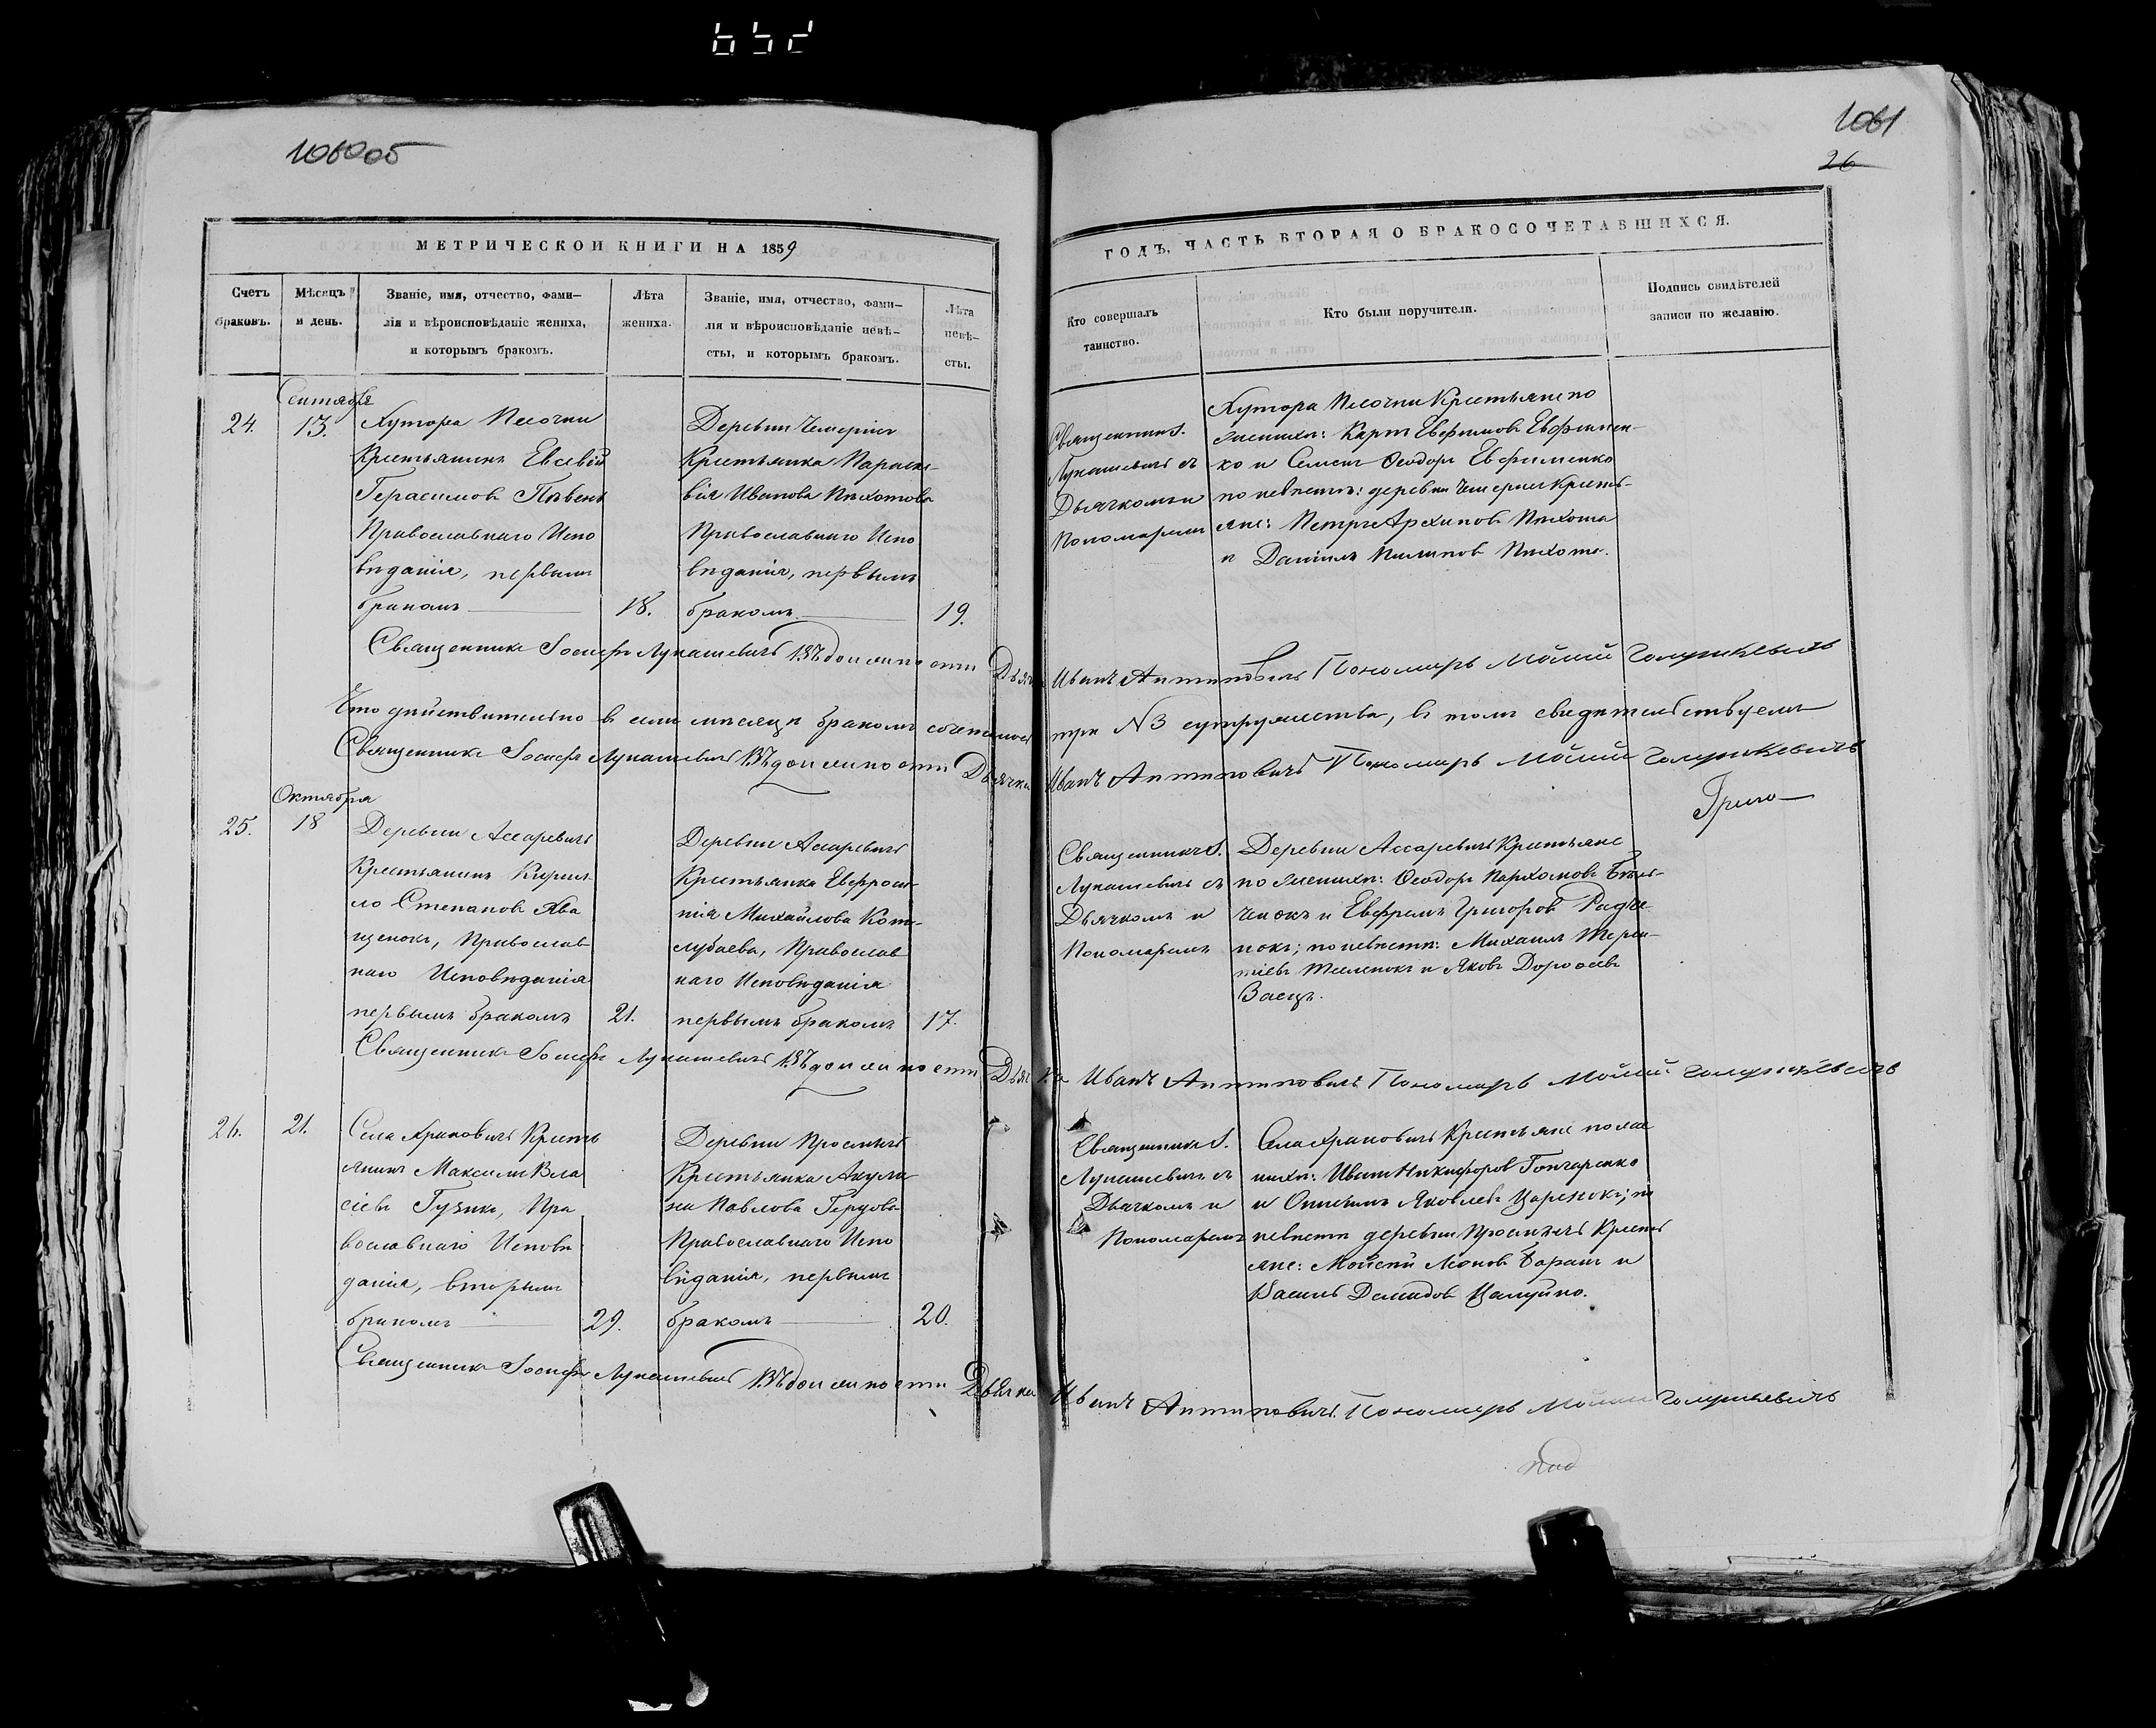 1060об
1061
26
МЕТРИЧЕСКОЙ КНИГИ НА 1859
ГОДЪ, ЧАСТЬ ВТОРАЯ О БРАКОСОЧЕТАВШИХСЯ.
Счетъ
браковъ.
Мѣсяцъ
и день.
Званіе, имя, отчество, фами–
лія и вѣроисповѣданіе жениха,
и которымъ бракомъ.
Лѣта
жениха.
Званіе, имя, отчество, фами–
лія и вѣроисповѣданіе невѣ–
сты, и которымъ бракомъ.
Лѣта
невѣ–
сты.
Кто совершалъ
таинство.
Кто были поручители.
Подпись свидѣтелей
записи по желанію.
Сентября
24.
13.
Хутора Песочни
Крестьянинъ Евсевій
Герасимовъ Пѣвень
Православнаго Испо
вѣданія, первымъ
бракомъ
18.
Деревни Чемерни
Крестьянка Параске-
вія Иванова Пѣхотова
Православнаго Испо
вѣданія, первымъ
бракомъ
19.
Священникъ І.
Лукашевичъ съ
Дьячкомъ и
Пономаремъ
Хутора Песочни Крестьяне по
женихѣ: Карпъ Евфимовъ Евфимен-
ко и Семенъ Ѳеодоръ Евфименко
по невѣстѣ: деревни Чемерни Кресть-
яне: Петръ Архиповъ Пѣхота
и Даніилъ Пилиповъ Пѣхота.
Священникъ Іосифъ Лукашевичъ Дьячекъ Иванъ Антиповичъ Пономарь Мойсій Голушкевичъ
Что дѣйствительно въ семъ мѣсяцѣ бракомъ сочеталось три №3 супружества, въ томъ свидѣтельствуемъ
Священникъ Іосифъ Лукашевичъ Дьячекъ Иванъ Антиповичъ Пономарь Мойсій Голушкевичъ
Октября
25.
18
Деревни Ассаревичъ
Крестьянинъ Кирил-
ло Степановъ Ква
щенокъ, Православ
наго Исповѣданія
первымъ бракомъ
21.
Деревни Ассаревичъ
Крестьянка Евфроси-
нія Михайлова Кот-
лубаева, Православ
наго Исповѣданія
первымъ бракомъ
17.
Священникъ І.
Лукашевичъ съ
Дьячкомъ и
Пономаремъ
Деревни Ассаревичъ Крестьяне
по женихѣ: Ѳеодоръ Пархомовъ Бѣль-
ченокъ и Ефремъ Григоровъ Радче
нокъ; по невѣстѣ: Михаилъ Терен-
тіевъ и Яковъ Дороѳеевъ
Заецъ.
Священникъ Іосифъ Лукашевичъ Дьячекъ Иванъ Антиповичъ Пономарь Мойсій Голушкевичъ
26.
21.
Села Храковичъ Кресть
янинъ Максимъ Вла
сіевъ Гузикъ, Пра
вославнаго Исповѣ
данія, вторымъ
бракомъ
29.
Крестьянка Акули
на Павлова Герцова
Православнаго Испо
вѣданія, первымъ
бракомъ
20.
Священникъ І.
Лукашевичъ съ
Дьячкомъ и
Пономаремъ
Села Храковичъ Крестьяне по же
нихѣ: Иванъ Никифоровъ Гончаренко
и Яковлевъ Царенокъ; по
невѣстѣ деревни Кресть
яне: Мойсей Леоновъ Баранъ и
Василь Демидовъ
Священникъ Іосифъ Лукашевичъ Дьячекъ Иванъ Антиповичъ Пономарь Мойсій Голушкевичъ